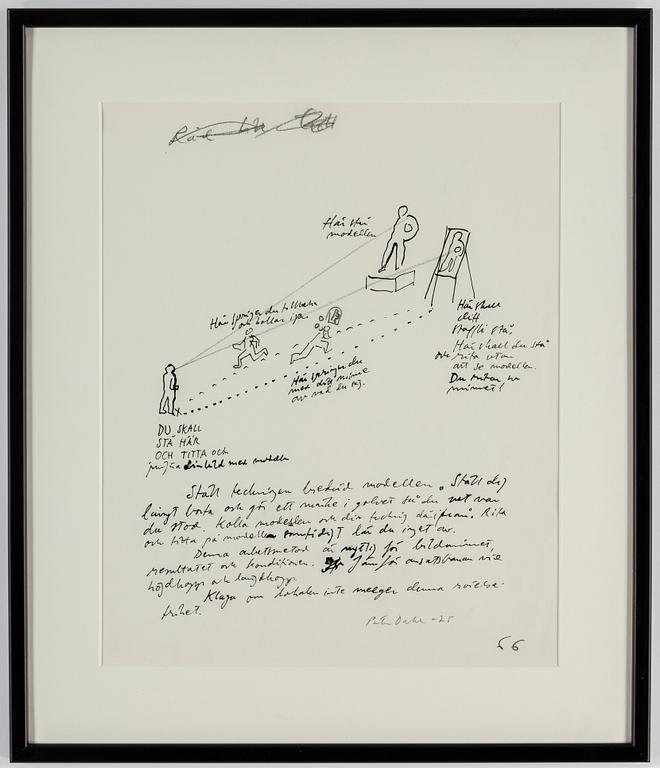 Råd
Här står
modellen
Här springer du tillbaka
och kollar igen
Här springer du
med ditt minne
av vad du såg.
Här skall
ditt
staffli stå
Här skall du stå
och rita utan
att se modellen.
Du ritar ur
minnet!
DU SKALL
STÅ HÄR
OCH TITTA OCH
jämföra din bild med modellen
Ställ teckningen bredvid modellen. Ställ dej
långt borta och gör ett märke i golvet så du vet var
du stod. Kolla modellen och din teckning därifrån. Rita
och titta på modellen samtidigt lär du inget av.
Denna arbetsmetod är nyttig för bildminnet,
resultatet och konditionen. Jämför ansatsbanan vid
höjdhopp och längdhopp.
Klaga om lokalen inte medger denna rörelse-
frihet.
Peter Dahl -25
66